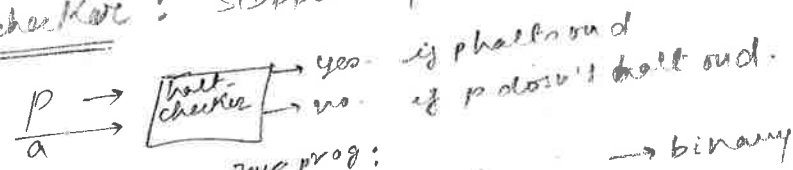 checker :
P → halt-checker → yes if p halts on d
a → → no if p doesn't halt on d.
prog : → binary